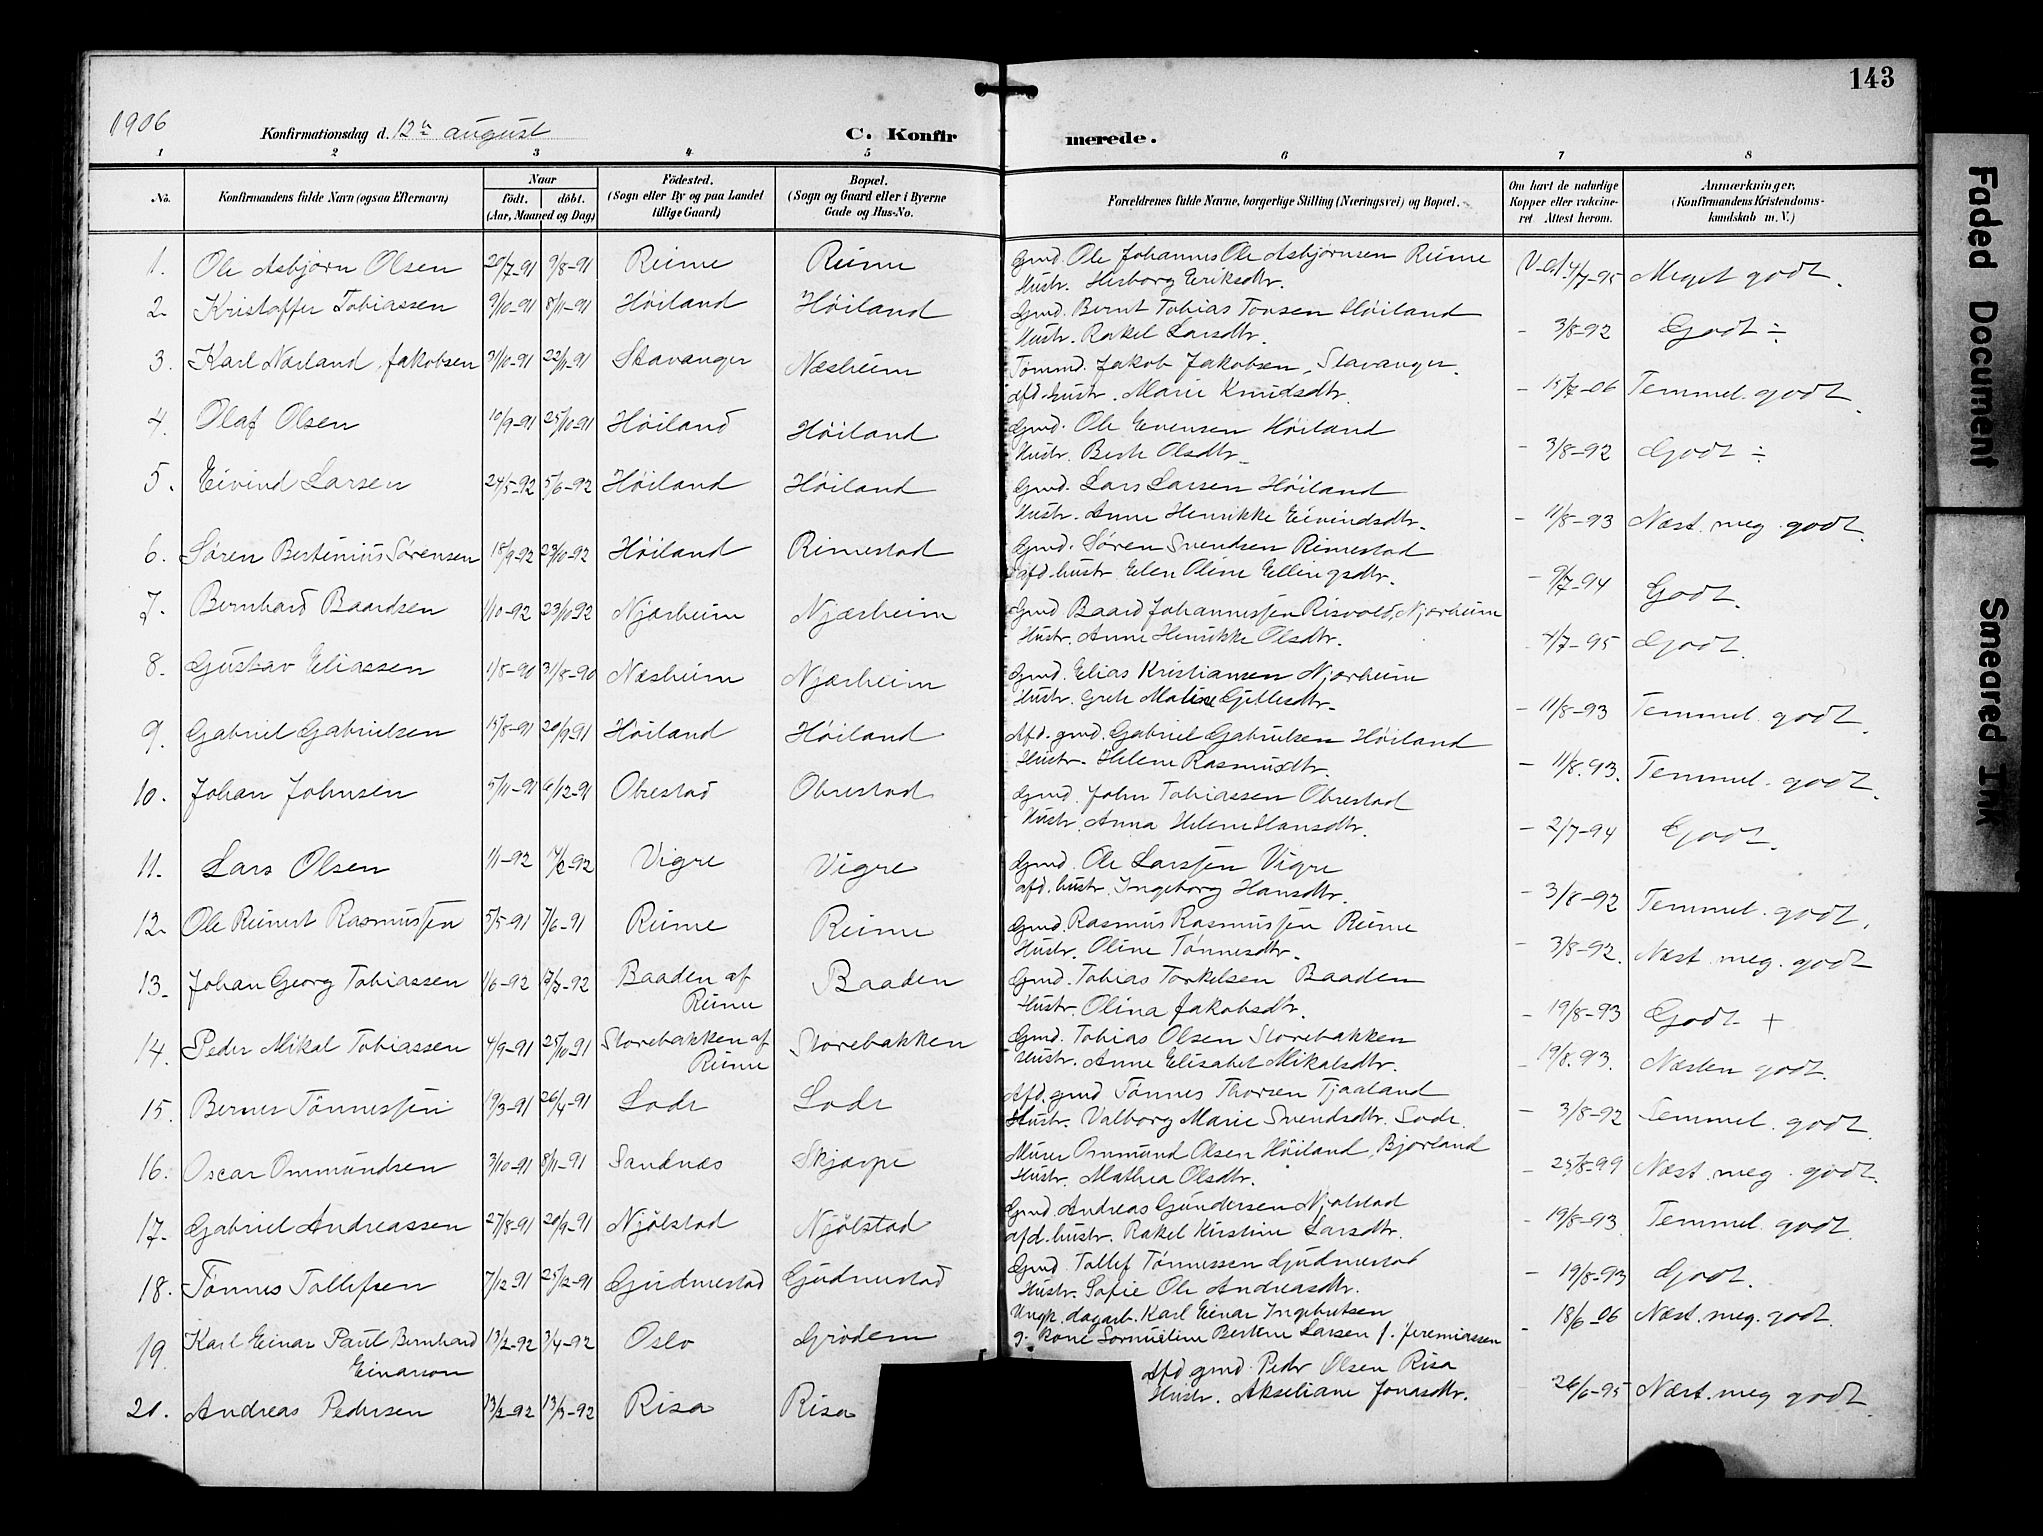 143
1906 Konfirmationsdag d. 12te august C. Konfir merede.
1 2 3 4 5 6 7 8
No. Konfirmandens fulde Navn (ogsaa Efternavn) Naar födt. döbt. (Aar, Maaned og Dag) Födested. (Sogn eller By og paa Landet tillige Gaard) Bopæl. (Sogn og Gaard eller i Byerne Gade og Hus-No. Forældrenes fulde Navne, borgerlige Stilling (Næringsvei) og Bopæl. Om havt de naturlige Kopper eller vakcineret. Attest herom. Anmærkninger. (Konfirmandens Kristendomskundskab m. V.)
1. Ole Asbjørn Olsen 20/7-91 9/8-91 Reime Reime Gmd. Ole Johannes Ole Asbjørnsen Reime
Hustr. Herborg Eriksdtr. 4/7-95 Meget godt.
2. Kristoffer Tobiassen 9/10-91 8/11-91 Høiland Høiland Gmd. Bernt Tobias Tonsen Høiland
Hustr. Rakel Larsdtr. - 3/8-92 Godt ÷
3. Karl Nærland Jakobsen 31/10-91 22/11-91 Stavanger Næsheim Tømmd. Jakob Jakobsen, Stavanger.
afd. hustr. Marie Knudsdtr. - 15/7-06 Temmel. godt.
4. Olaf Olsen 10/9-91 25/10-91 Høiland Høiland Gmd. Ole Evensen Høiland
Hustr. Berte Olsdtr. - 3/8-92 Godt ÷
5. Eivind Larsen 24/5-92 5/6-92 Høiland Høiland Gmd. Lars Larsen Høiland
Hustr. Anne Henrikke Eivindsdtr. - 11/8-93 Næst. meg. godt.
6. Søren Bertinius Sørensen 18/9-92 23/10-92 Høiland Rimestad Gmd. Søren Svendsen Rimestad
afd. hustr. Elen Oline Ellingsdtr. - 9/7-94 Godt.
7. Bernhard Baardsen 1/10-92 23/10-92 Njærheim Njærheim Gmd Baard Johannessen Risvold, Njærheim
Hustr. Anne Henrikke Olsdtr. 4/7-95 Godt.
8. Gustav Eliassen 1/8-90 31/8-90 Næsheim Njærheim Gmd. Elias Kristiansen Njærheim
Hustr. Grete Maline Gjellesdtr. - 11/8-93 Temmel. godt.
9. Gabriel Gabrielsen 15/8-91 20/9-91 Høiland Høiland Afd. gmd. Gabriel Gabrielsen Høiland
Hustr. Helene Rasmusdtr. - 11/8.93. Temmel. godt.
10. Johan Johnsen 5/11-91 6/12-91 Obrestad Obrestad Gmd. John Tobiassen Obrestad
Hustr. Anna Helene Hansdtr. - 2/7-94 Godt.
11. Lars Olsen 1/1-92 Vigre Vigre Gmd. Ole Larssen Vigre
afd. hustr. Ingeborg Hansdtr. - 3/8-92 Temmel. godt.
12. Ole Reinert Rasmussen 5/5-91 7/6-91 Reime Reime Gmd. Rasmus Rasmussen Reime
Hustr. Oline Tønnesdtr. - 3/8-92. Næst. meg. godt
13. Johan Georg Tobiassen 1/6-92 17/7-92 Baaden af Reime Baaden Gmd. Tobias Torkelsen Baaden
Hustr. Olina Jakobsdtr. - 19/8-93 Godt +
14. Peder Mikal Tobiassen 4/9-91 25/10-91 Storebakken af Reime Storebakken Gmd. Tobias Olsen Storebakken
Hustr. Anne Elisabet Mikalsdtr. - 19/8.93. Næsten godt.
15. Bernes Tønnessen 19/3-91 26/4-91 Lode Lode Afd. gmd Tønnes Thorsen Tjaaland
Hustr. Valborg Marie Svendsdtr. Lode. - 3/8-92 Temmel. godt.
16. Oscar Ommundsen 3/10-91 8/11-91 Sandnæs Skjærpe Murer Ommund Olsen Høiland, Bjorland
Hustr. Mathea Olsdtr. - 25/8-99 Næst. meg. godt.
17. Gabriel Andreassen 27/8-91 20/9-91 Njølstad Njølstad Gmd. Andreas Gundersen Njølstad
afd. hustr. Rakel Kirstine Larsdtr. - 19/8-93 Temmel. godt.
18. Tønnes Tollefsen 7/12-91 25/12-91 Gudmestad Gudmestad Gmd. Tollef Tønnessen Gudmestad
Hustr. Sofie Ole Andreasdtr. - 19/8-93 Godt.
19. Karl Einar Paul Bernhard Einarson 13/2-92 3/4-92 Oslo Grødem Ungk. dagarb. Karl Einar Ingebretsen
g. kone Bertine Larsen f. Jeremiassen - 18/6-06 Næst. meg. godt.
20. Andreas Pedersen 13/2-92 13/3-92 Risa Risa Afd gmd. Peder Olsen Risa
Hustr. Akseliane Jonasdtr. - 26/6-95 Næst. meg godt.
Faded Document
Smeared Ink